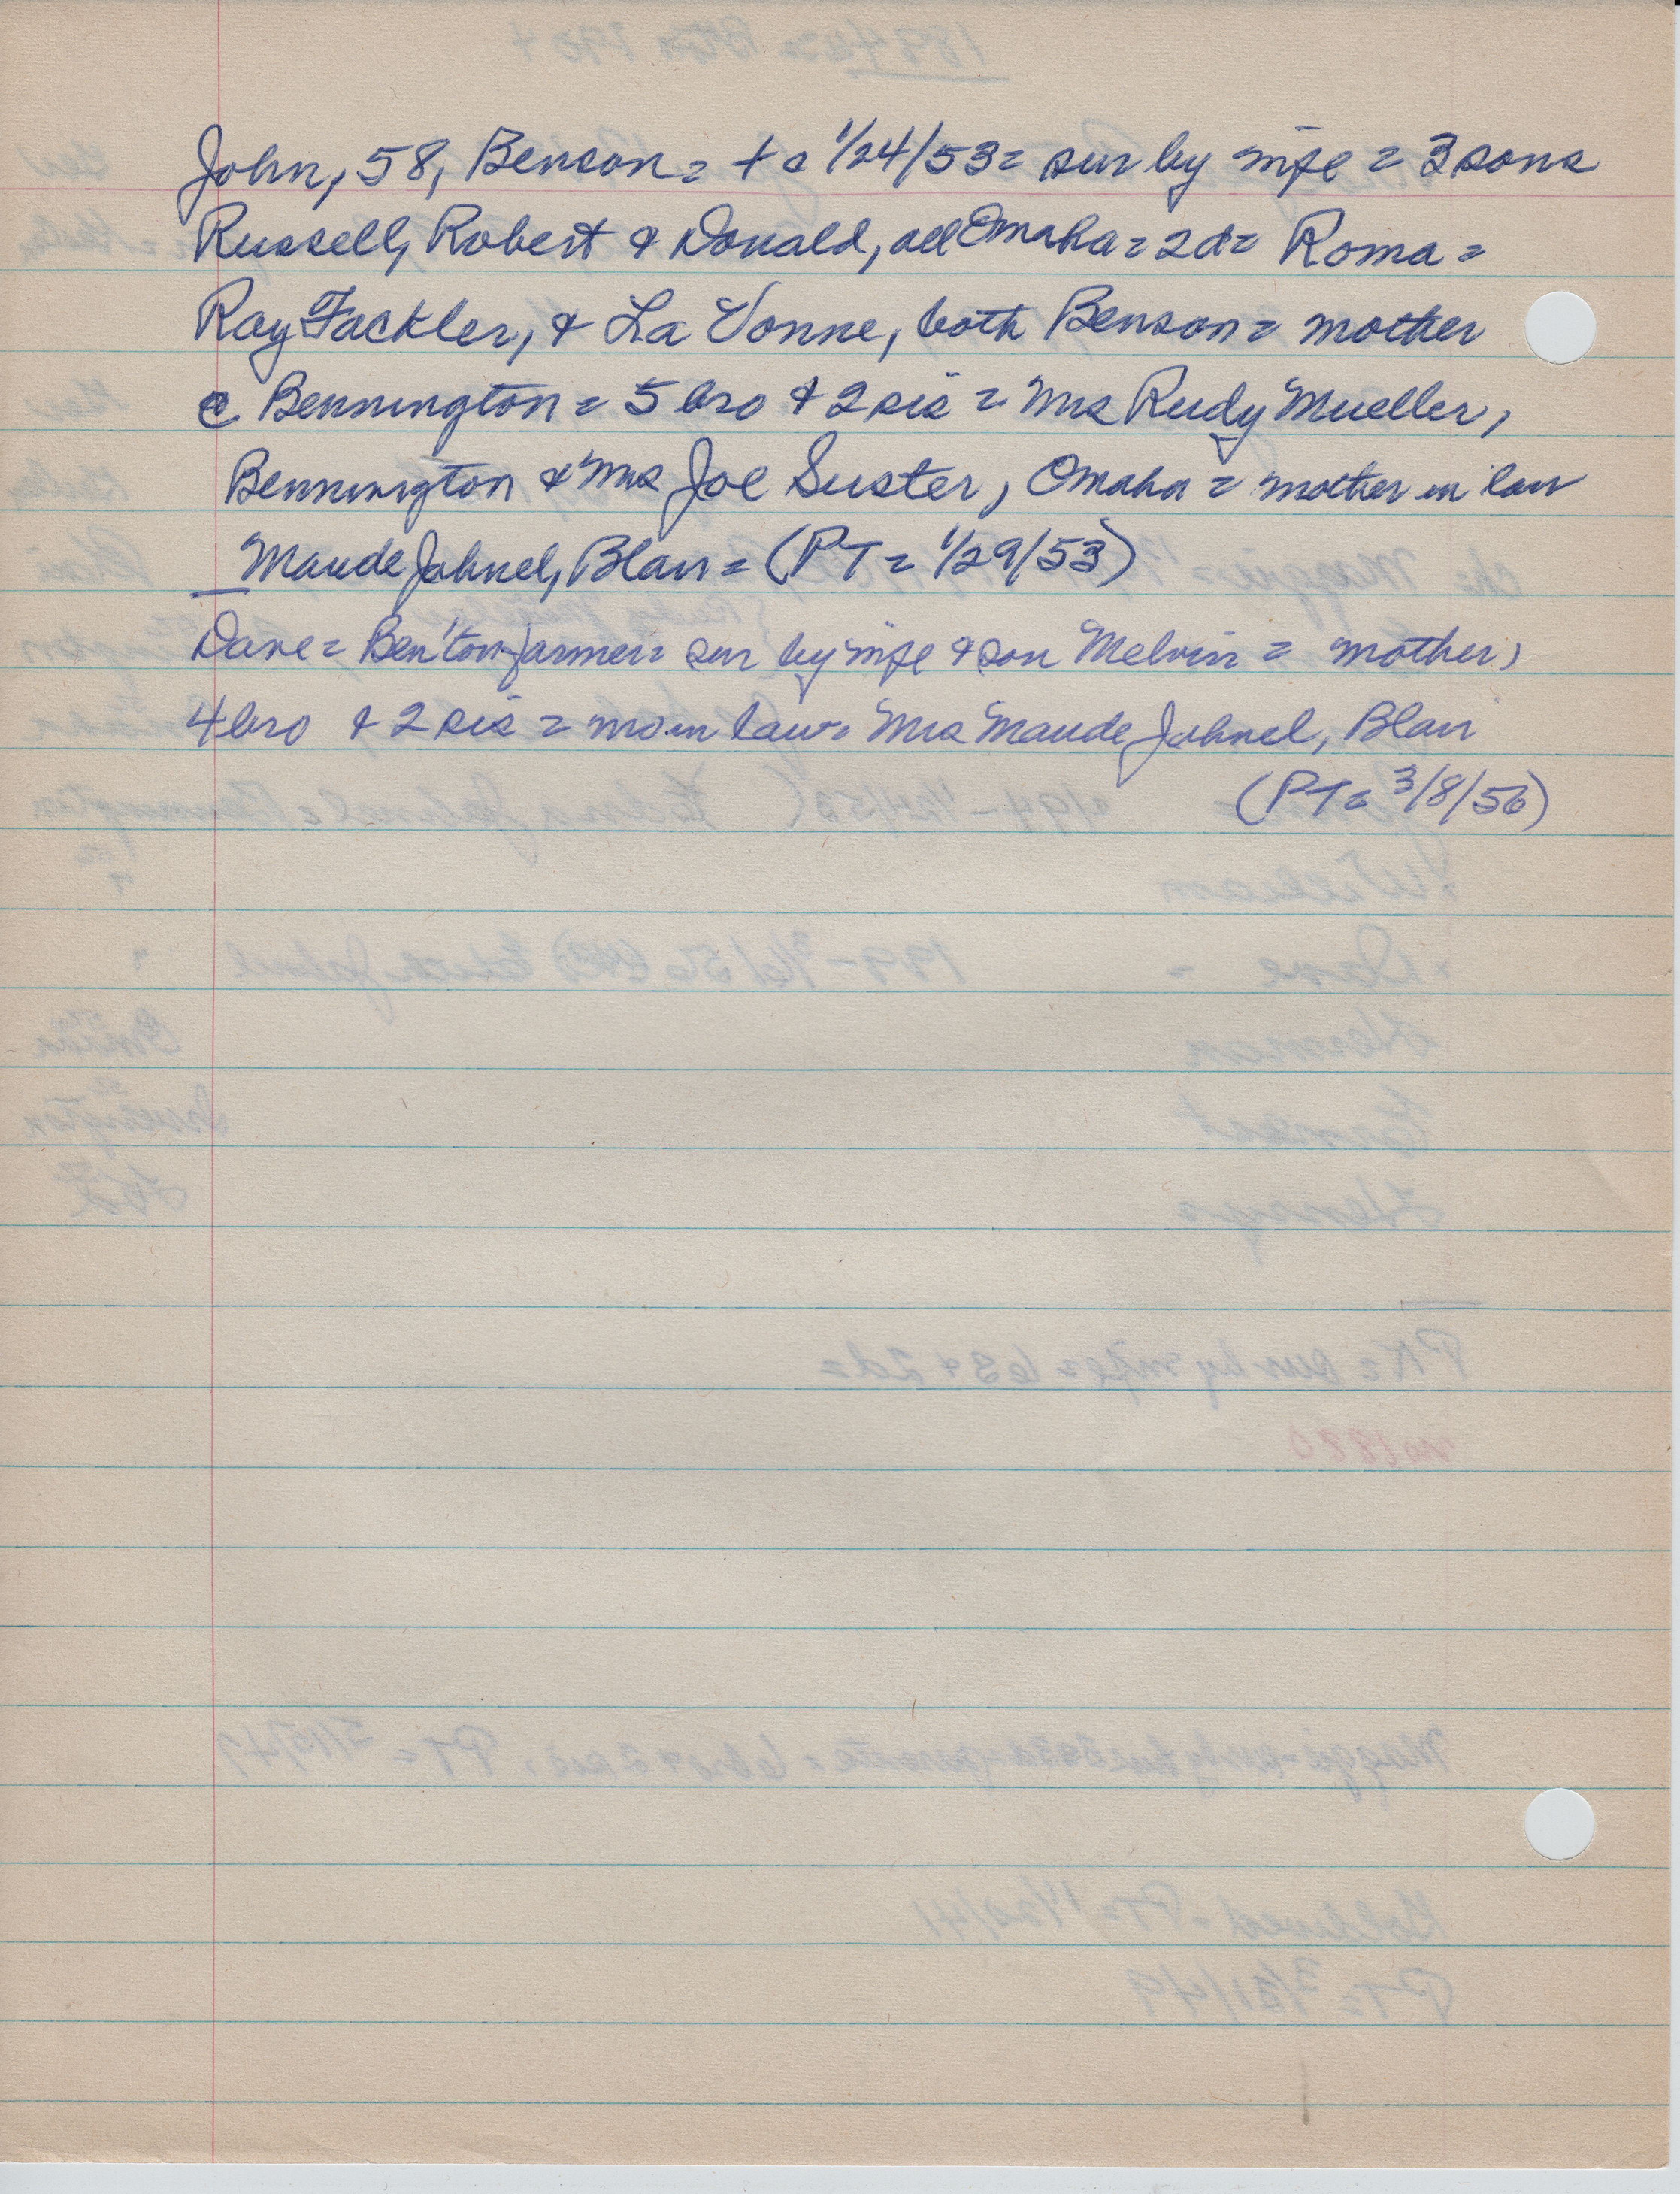 John, 58, Benson = + @ 1/24/53 = sur by wife = 3 sons
Russell, Robert & Donald, all Omaha = 2d = Roma =
Ray Fackler, & La Vonne, both Benson = mother
@ Bennington = 5 bro & 2 sis = Mrs Rudy Mueller,
Bennington & Mrs Joe Suster, Omaha = mother in law
Maude Jahnel, Blair = (PT = 1/29/53)
Dave = Ben'ton farmer = sur by wife & son Melvin = mother,
4 bro & 2 sis = mo in law = Mrs Maude Jahnel, Blair
(PT = 3/8/56)